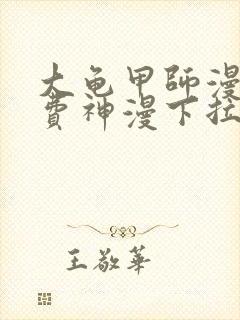 大龟甲師漫
費神漫下拉
王敬華